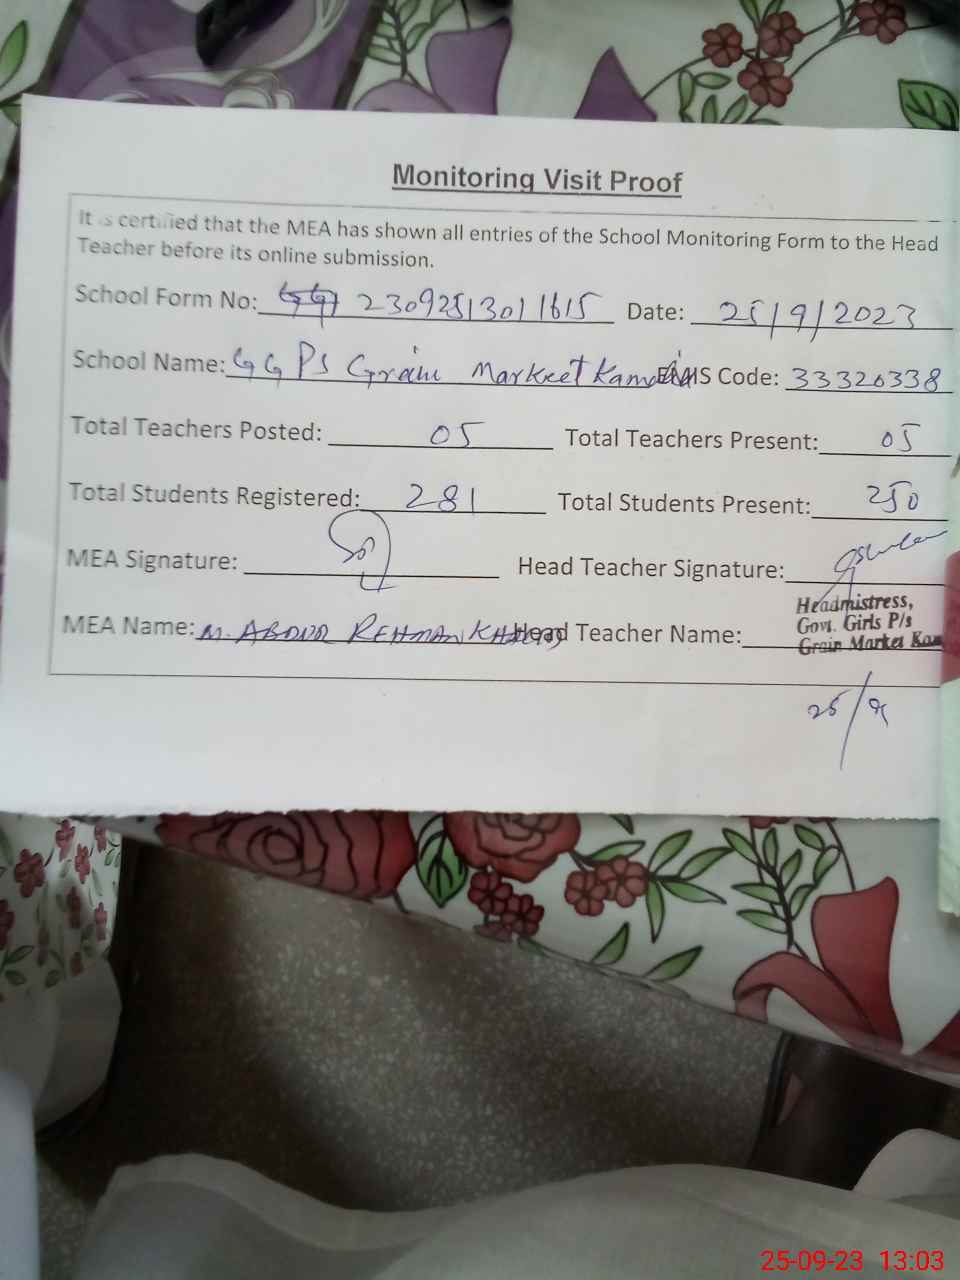 Monitoring Visit Proof
It is certified that the MEA has shown all entries of the School Monitoring Form to the Head
Teacher before its online submission.
School Form No: 2309251301 1615 Date: 25/9/2023
School Name: GGPS Grain Markeet Kamalia EMIS Code: 33320338
Total Teachers Posted: 05 Total Teachers Present: 05
Total Students Registered: 281 Total Students Present: 250
MEA Signature: Head Teacher Signature:
MEA Name: M. ABDUR REHMAN Head Teacher Name:
Headmistress,
Govt. Girls P/s
Grain Market Kam
25/9
25-09-23 13:03